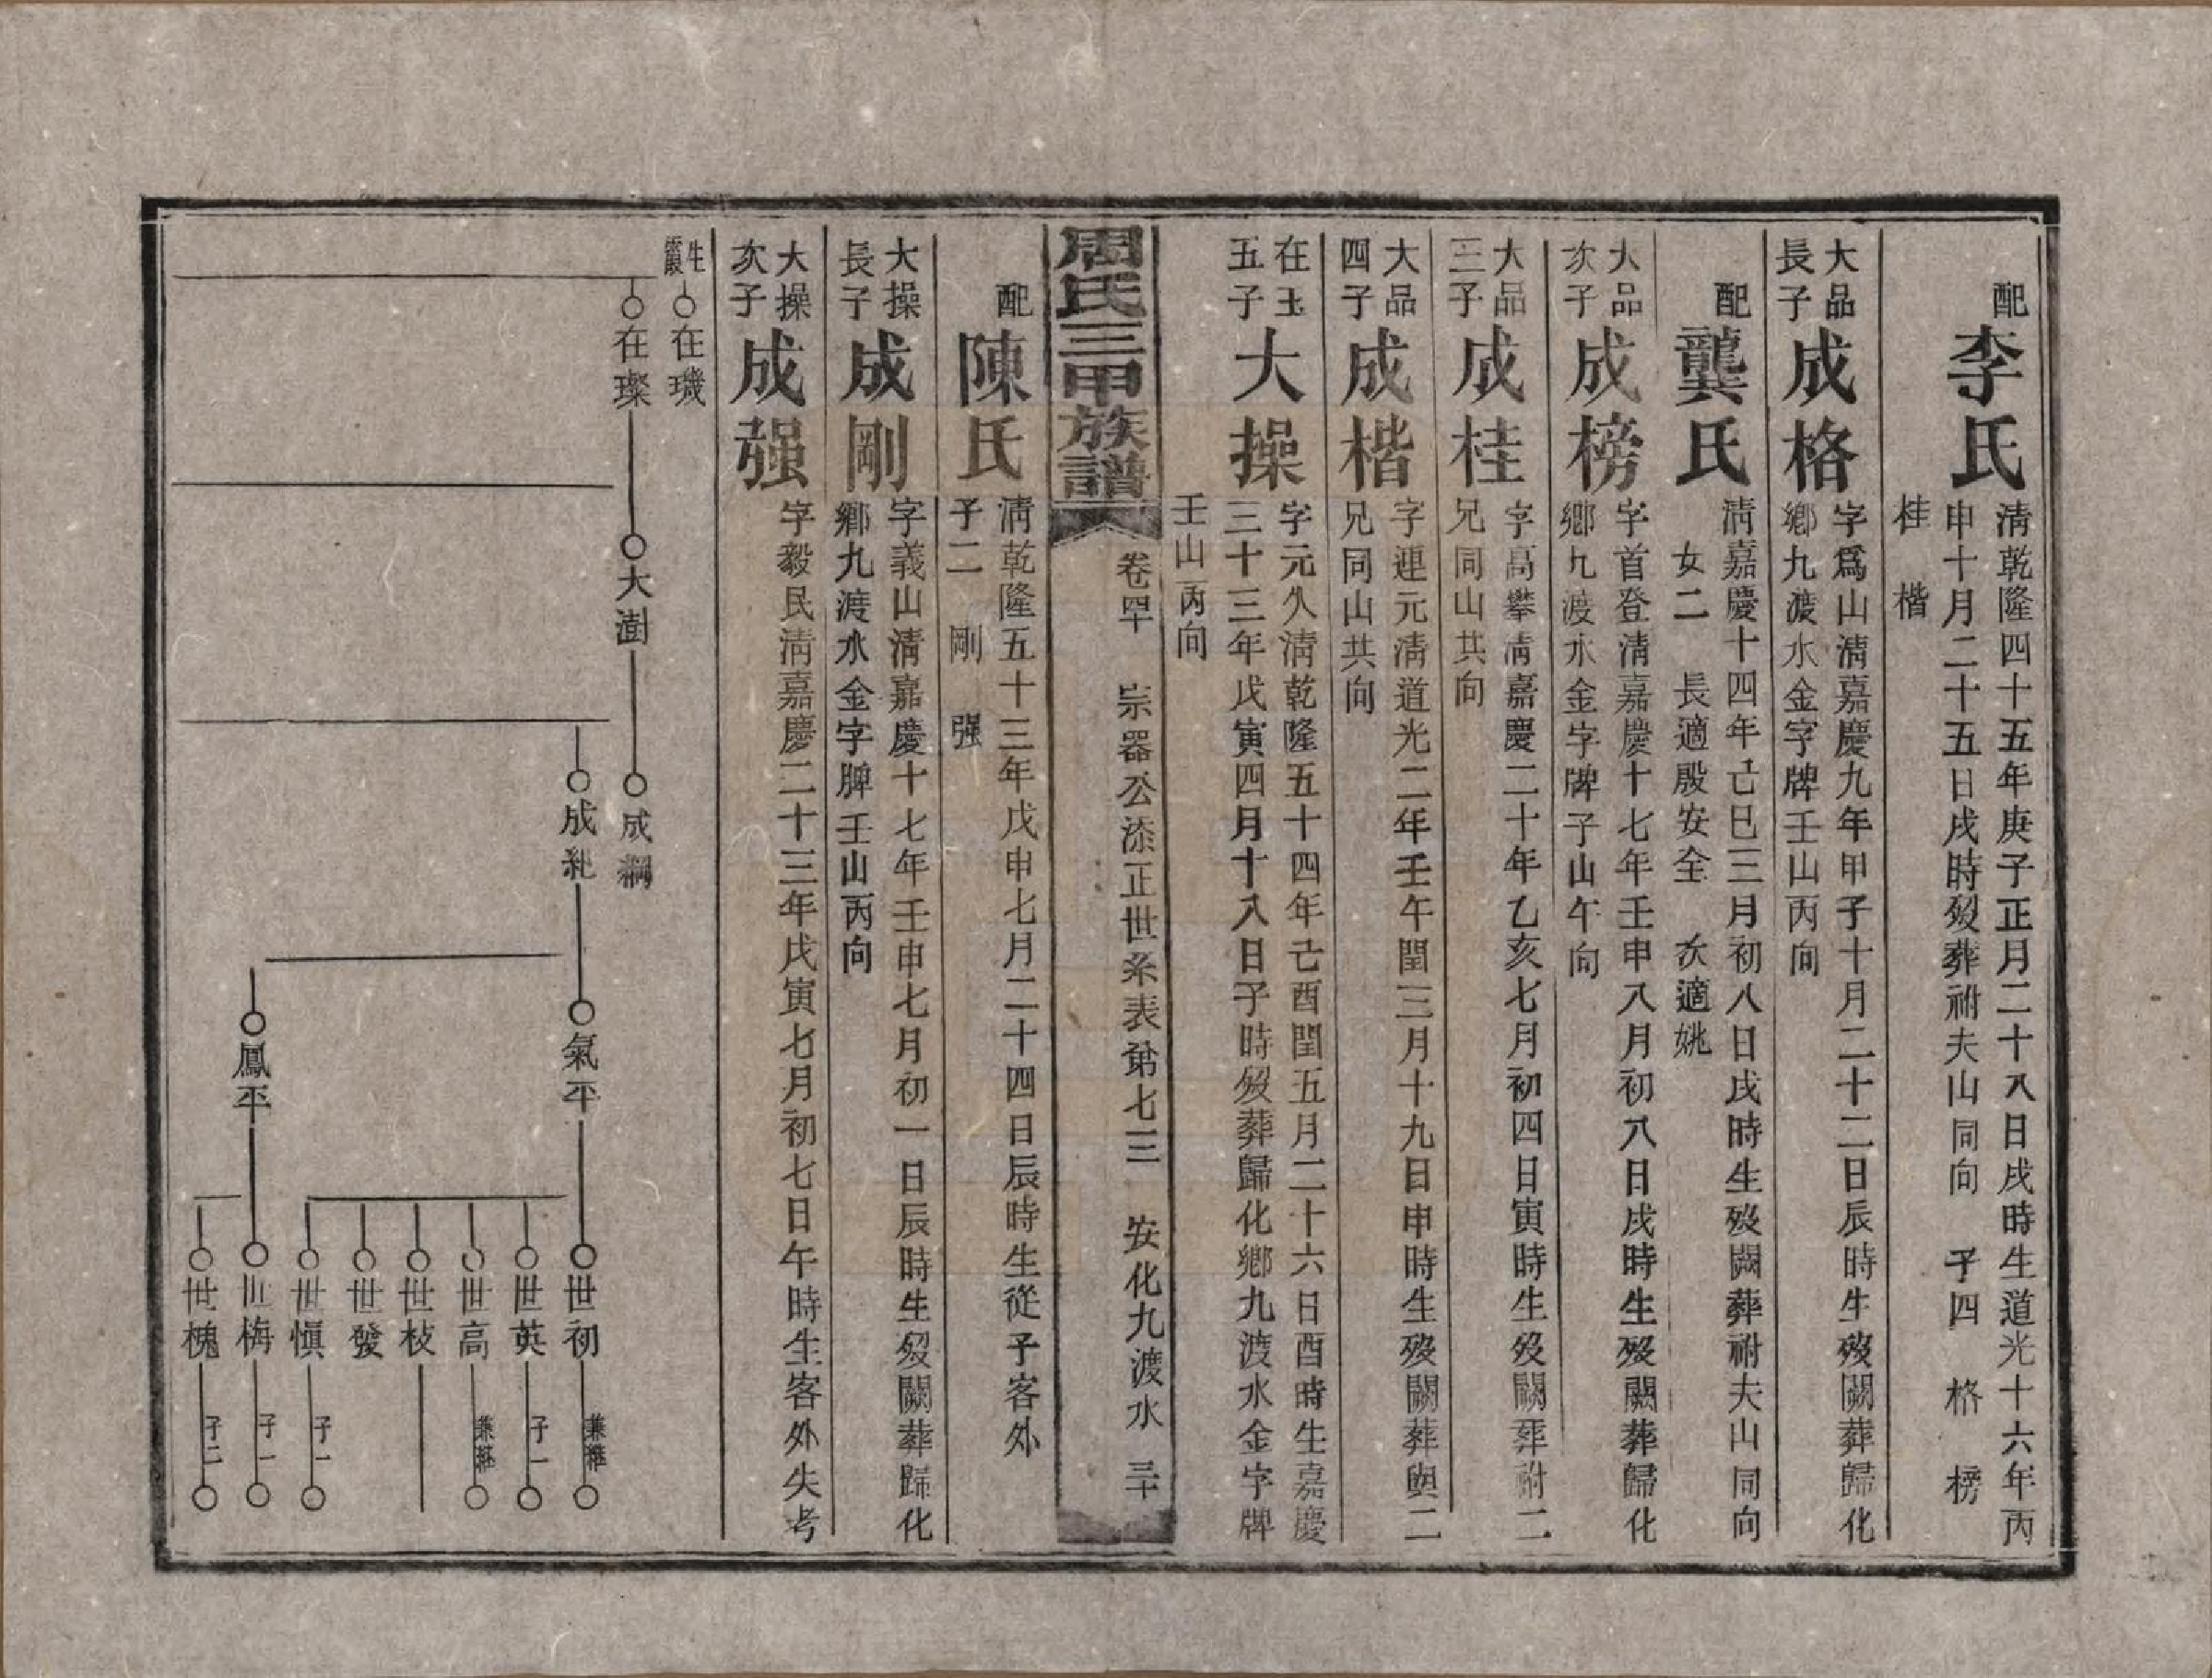 配
李氏
淸乾隆四十五年庚子正月二十八日戌時生道光十六年丙
申十月二十五日戌時歿葬祔夫山同向 子四 格 榜
桂 楷
大品
長子
成格
字爲山淸嘉慶九年甲子十月二十二日辰時生歿闕葬歸化
鄉九渡水金字牌壬山丙向
配
龔氏
淸嘉慶十四年己巳三月初八日戌時生歿闕葬祔夫山同向
女二 長適殷安全 次適姚
大品
次子
成榜
字首登淸嘉慶十七年壬申八月初八日戌時生歿闕葬歸化
鄉九渡水金字牌子山午向
大品
三子
成桂
字高攀淸嘉慶二十年乙亥七月初四日寅時生歿闕葬祔二
兄同山共向
大品
四子
成楷
字連元淸道光二年壬午閏三月十九日申時生歿闕葬與二
兄同山共向
在玉
五子
大操
字元久淸乾隆五十四年己酉閏五月二十六日酉時生嘉慶
三十三年戊寅四月十八日子時歿葬歸化鄉九渡水金字牌
壬山丙向
周氏三甲族譜
卷四 宗器公添正世系表第七三 安化九渡水 三十
配
陳氏
淸乾隆五十三年戊申七月二十四日辰時生從子客外
子二 剛 强
大操
長子
成剛
字義山淸嘉慶十七年壬申七月初一日辰時生歿闕葬歸化
鄉九渡水金字牌壬山丙向
大操
次子
成强
字毅民淸嘉慶二十三年戊寅七月初七日午時生客外失考
生
在璣
在璨
大澍
成綱
成紀
氣平
鳳平
世初
世英 子一
世高
世枝
世發
世愼 子一
世梅 子一
世槐 子二